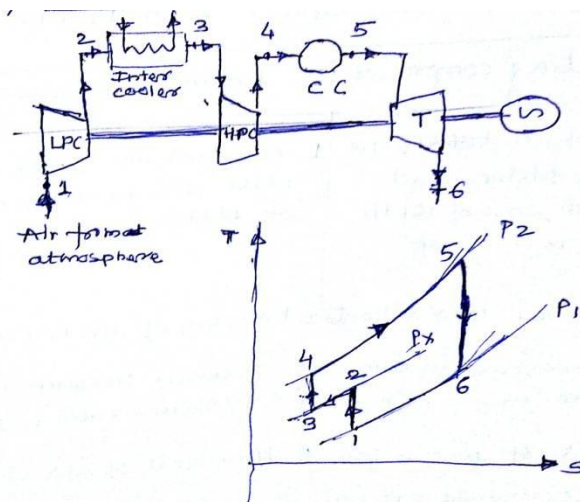 2 3 4 5
Inter
cooler
C C
LPC HPC T S
1 6
Air fomat
atmosphere
T P2
5
P1
Px
4 2
3 6
1
S